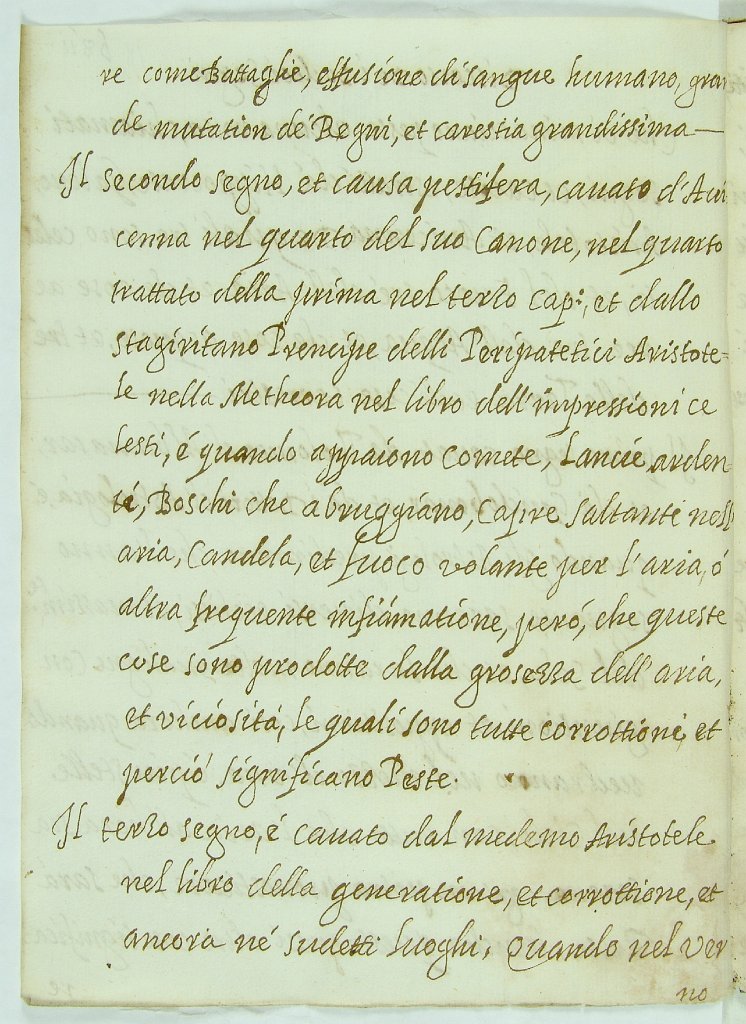 re come Battaglie, effusione di sangue humano, gran
de mutation de' Regni, et carestia grandissima —
Il secondo segno, et causa pestifera, cavato d'Avi
cenna nel quarto del suo Canone, nel quarto
trattato della prima nel terzo cap:, et dallo
stagiritano Prencipe delli Peripatetici Aristote=
le nella Metheora nel libro dell'impressioni ce
lesti, é quando appaiono Comete, Lancie arden
ti, Boschi che abruggiano, Capre saltante nell
aria, Candela, et fuoco volante per l'aria, ó
altra frequente infiámatione, peró, che queste
cose sono prodotte dalla grosezza dell'aria,
et viciositá, le quali sono tutte corrottioni, et
perció significano Peste.
Il terzo segno, é cavato dal medemo Aristotele
nel libro della generatione, et corrottione, et
ancora né sudetti luoghi. Quando nel ver
no